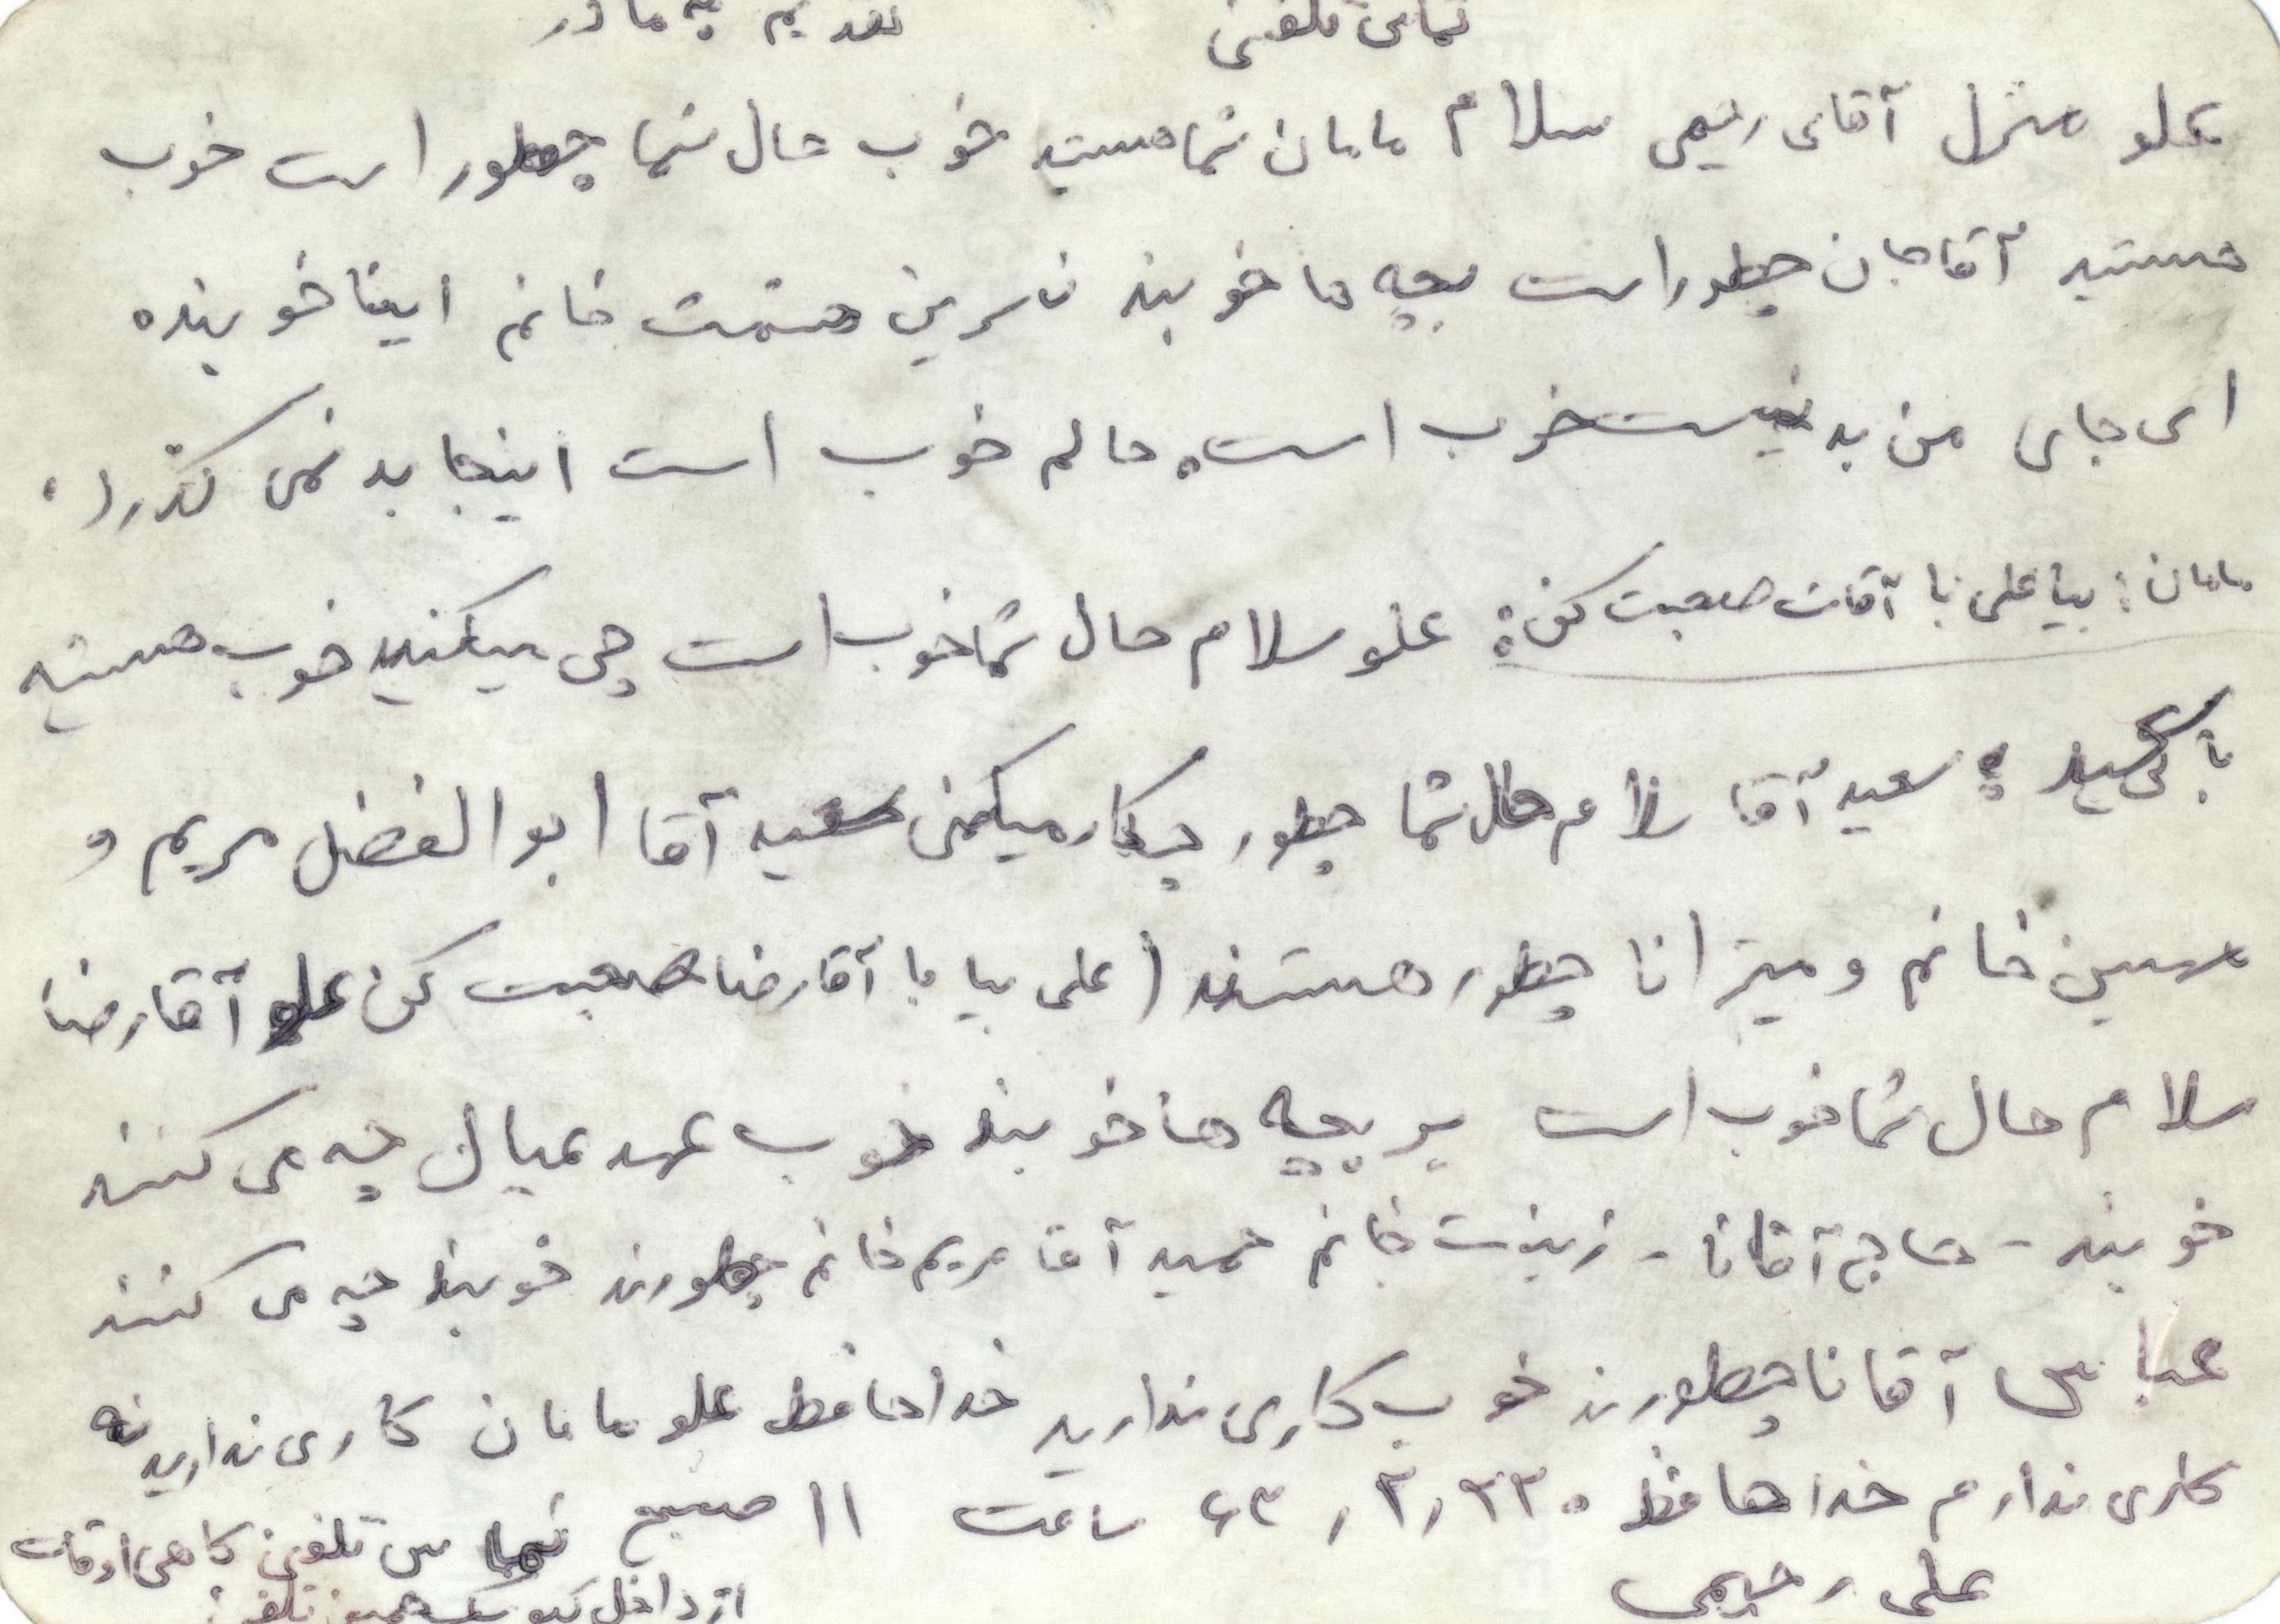 تماس تلفنی تقدیم به مادر
علو منزل آقای رحیمی سلام مامان شما هستید خوب حال شما چطور است خوب
هستید آقاجان چطور است بچه ها خوبند نسرین حشمت خانم اینا خوبنده
ای جای من بد نیست خوب است حالم خوب است اینجا بد نمی گذرد
مامان: بیا علی با آقات صحبت کن: علو سلام حال شما خوب است چی میکنید خوب هستید
سعید آقا سلام حال شما چطور چیکار میکنی سعید آقا ابوالفضل مریم و
مهین خانم و میترا انا چطور هستند (علی بیا با آقا رضا صحبت کن علو آقا رضا
سلام حال شما خوب است بچه ها خوبند خوب عهد عیال چه می کنند
خوبند - حاج آقا انا - زینت خانم حمید آقا مریم خانم چطورند خوبند چه می کنند
عباس آقا انا چطورند خوب کاری ندارید خداحافظ علو مامان کاری ندارید نه
کاری ندارم خداحافظ ساعت ۱۱ صبح تماس تلفنی گاهی اوقات
علی رحیمی از داخل کیوسک همین تلفن